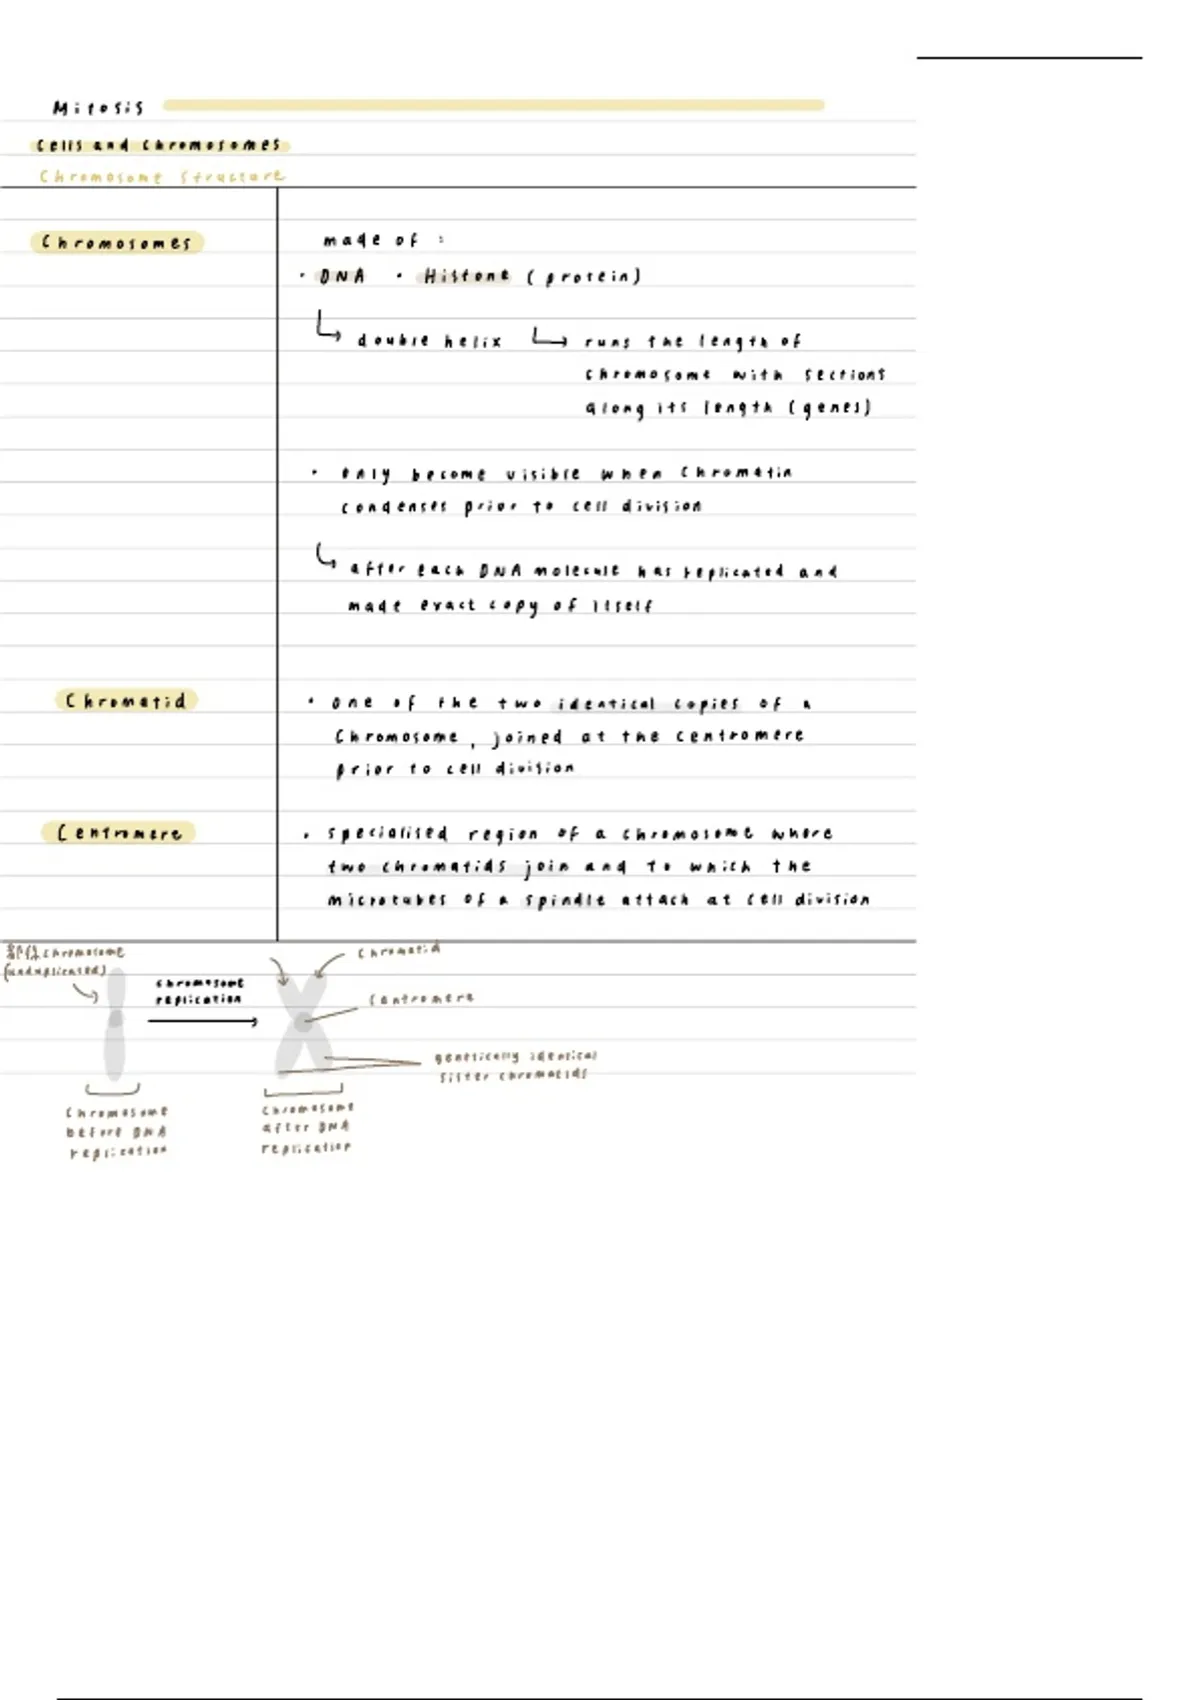 Mitosis
Cells and Chromosomes
Chromosome Structure
Chromosomes
made of :
• DNA • Histone (protein)
double helix runs the length of
chromosome with sections
along its length (genes)
• only become visible when chromatin
condenses prior to cell division
after each DNA molecule has replicated and
made exact copy of itself
Chromatid
• one of the two identical copies of a
chromosome, joined at the centromere
prior to cell division
Centromere
• specialised region of a chromosome where
two chromatids join and to which the
microtubes of a spindle attach at cell division
chromosome
(unduplicated)
chromosome
replication
chromatid
centromere
genetically identical
sister chromatids
chromosome
before DNA
replication
chromosome
after DNA
replication